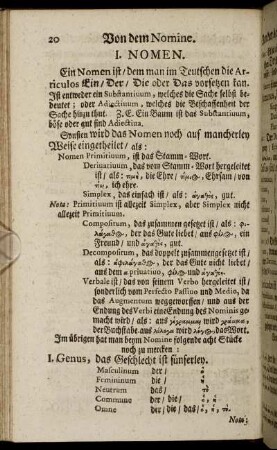 20 Von dem Nomine.
I. NOMEN.
Ein Nomen ist / dem man im Teutschen die Ar-
ticulos Ein / Der / Die oder Das vorsetzen kan.
Ist entweder ein Substantivum, welches die Sache selbst be-
deutet: oder Adjectivum, welches die Beschaffenheit der
Sache hinzu thut. Z. E. Ein Baum ist das Substantivum,
böse oder gut sind Adjectiva.
Sonsten wird das Nomen noch auf mancherley
Weise eingetheilet / als:
Nomen Primitivum, ist das Stamm-Wort.
Derivativum, das vom Stamm-Wort hergeleitet
ist / als: τιμὴ, die Ehre / Ehrsam / von
ich ehre.
Simplex, das einfach ist / als: ἀγαθὸς, gut.
Nota: Primitivum ist allezeit Simplex, aber Simplex nicht
allezeit Primitivum.
Compositum, das zusammen gesetzt ist / als: φι-
λάγαθος, der das Gute liebet / aus φίλος, ein
Freund / und ἀγαθὸς, gut.
Decompositum, das doppelt zusammengesetzt ist /
als: ἀφιλάγαθος, der das Gute nicht liebet /
aus dem α privativo, φίλος und ἀγαθὸς.
Verbale ist / das von seinem Verbo hergeleitet ist
/ sonderlich vom Perfecto Passivo und Medio, da
das Augmentum weggeworffen / und aus der
Endung des Verbi eine Endung des Nominis ge-
macht wird / als: aus γέγραμμαι wird γράμμα,
der Buchstabe aus wird das Wort.
Im übrigen hat man beym Nomine folgende acht Stücke
noch zu mercken:
I. Genus, das Geschlecht ist fünferley.
Masculinum der / ὁ
Femininum die / ἡ
Neutrum das / τὸ
Commune der / die / ὁ, ἡ
Omne der / die / das / ὁ, ἡ, τὸ.
Nota: